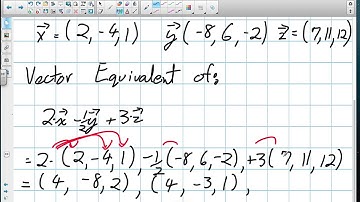 x⃗ = (2, -4, 1) y⃗ (-8, 6, -2) z⃗ = (7, 11, 12)
Vector Equivalent of:
2·x⃗ - 1/2 y⃗ + 3·z⃗
= 2·(2, -4, 1), - 1/2 (-8, 6, -2), +3(7, 11, 12)
= (4, -8, 2), (4, -3, 1),